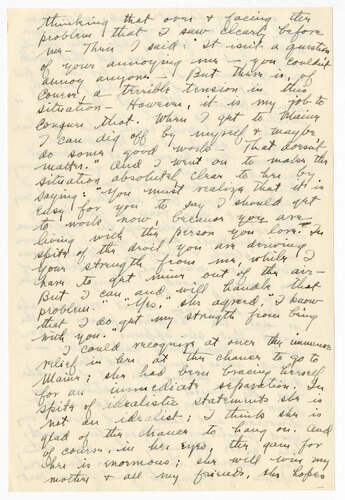 thinking that over & facing the
problem that I saw clearly before
me. Then I said: "It isn't a question
of your annoying me — you couldn't
annoy anyone — But there is, of
course, a terrible tension in this
situation — However, it is my job to
conquer that. When I get to Maine
I can dig off by myself & maybe
do some good work — that doesn't
matter." And I went on to make the
situation absolutely clear to her by
saying: "You must realize that it is
easy for you to say I should get
to work now, because you are
living with the person you love. In
spite of the devil you are deriving
your strength from me, while I
have to get mine out of the air—
But I can and will handle that
problem." "Yes," she agreed, "I know
that I do get my strength from being
with you."
I could recognize at once the immense
relief in her at this chance to go to
Maine; she had been bracing herself
for an immediate separation. In
spite of idealistic statements she is
not an idealist; I think she is
glad of the chance to hang on. And
of course, in her eyes, the gain for
her is enormous; she will win my
mother & all my friends, she hopes